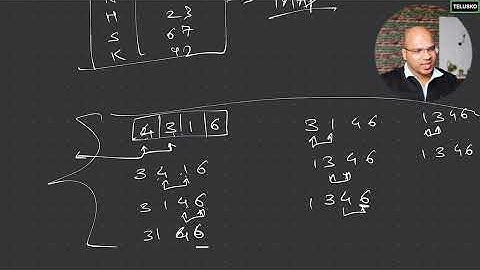 TELUSKO
H 23
S 67
K 92
4 3 1 6
3 4 1 6
3 1 4 6
3 1 4 6
3 1 4 6
1 3 4 6
1 3 4 6
1 3 4 6
1 3 4 6